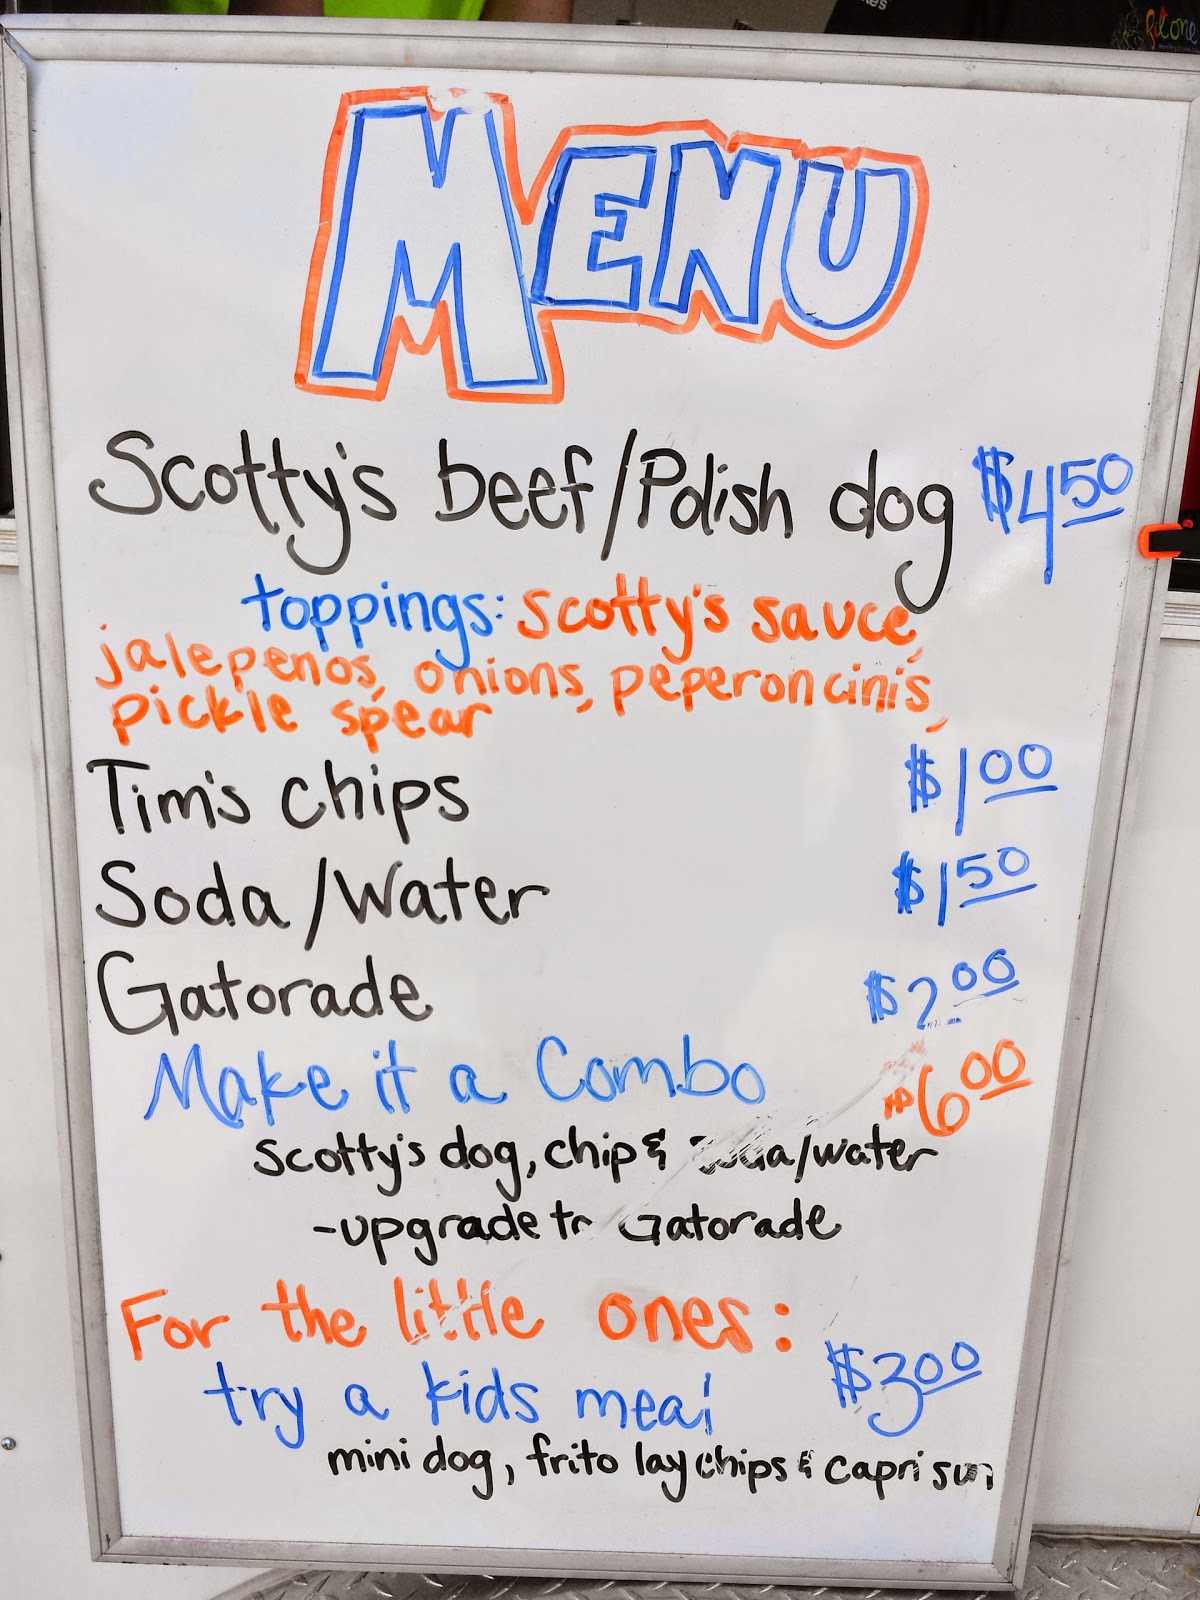 MENU
Scotty's beef/Polish dog $4.50
toppings: Scotty's sauce,
jalepenos, onions, peperoncinis,
pickle spear
Tim's chips $1.00
Soda/Water $1.50
Gatorade $2.00
Make it a Combo $6.00
Scotty's dog, chip & soda/water
-upgrade to Gatorade
For the little ones:
try a kids meal $3.00
mini dog, frito lay chips & capri sun